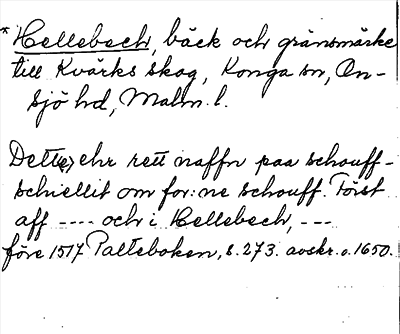 * Hellebech, bäck och gränsmärke
till Kvärks skog, Konga sn, On-
sjö hd, Malm. l.
Dette) ehr rett naffn paa schouff-
schiellit om for:ne schouff. Först
aff ---- och i Hellebech, ---
före 1517 Palteboken, s. 273. avskr. o. 1650.